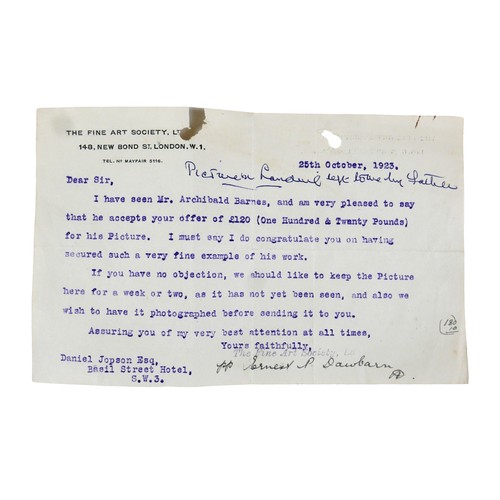 THE FINE ART SOCIETY, LTD
148, NEW BOND ST. LONDON, W.1.
TEL. No MAYFAIR 5116.
25th October, 1923.
Picture on Landing left to me by Father
Dear Sir,
I have seen Mr. Archibald Barnes, and am very pleased to say
that he accepts your offer of £120 (One Hundred & Twenty Pounds)
for his Picture. I must say I do congratulate you on having
secured such a very fine example of his work.
If you have no objection, we should like to keep the Picture
here for a week or two, as it has not yet been seen, and also we
wish to have it photographed before sending it to you.
Assuring you of my very best attention at all times,
Yours faithfully,
The Fine Art Society, Ld
pp Ernest P. Dawbarn
Daniel Jopson Esq,
Basil Street Hotel,
S.W.3.